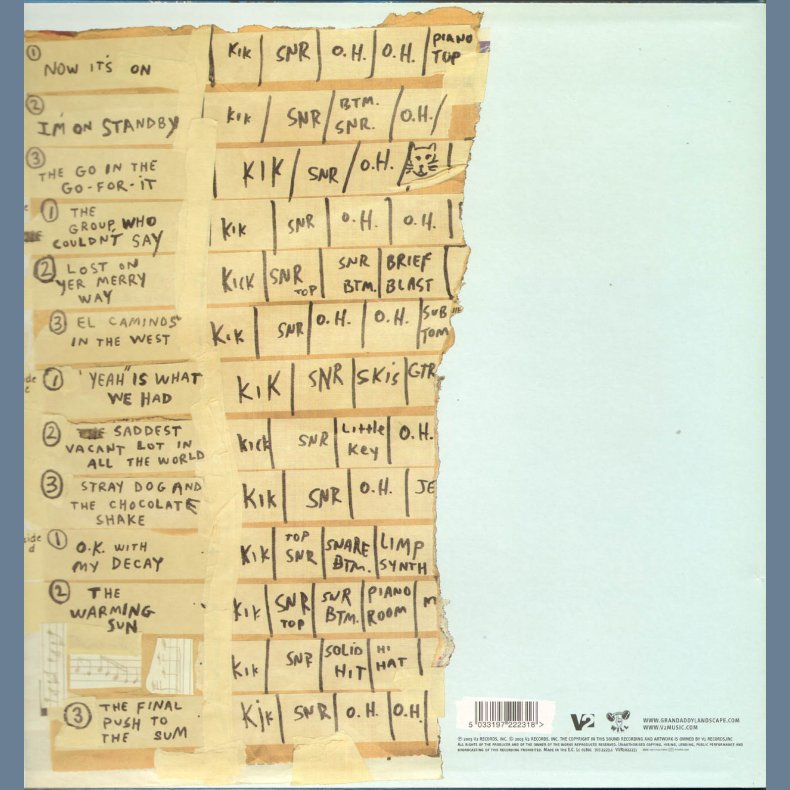 1 NOW IT'S ON KIK SNR O.H. O.H. PIANO TOP
2 I'M ON STANDBY KIK SNR BTM. SNR. O.H.
3 THE GO IN THE KIK SNR O.H.
GO-FOR-IT
1 THE KIK SNR O.H. O.H.
GROUP WHO
COULDN'T SAY
2 LOST ON KICK SNR TOP SNR BTM. BRIEF BLAST
YER MERRY
WAY
3 EL CAMINOS KIK SNR O.H. O.H. SUB TOM
IN THE WEST
1 "YEAH" IS WHAT KIK SNR SKIS GTR
WE HAD
2 SADDEST KICK SNR LITTLE KEY O.H.
VACANT LOT IN
ALL THE WORLD
3 STRAY DOG AND KIK SNR O.H. JE
THE CHOCOLATE
SHAKE
side d
1 O.K. WITH KIK TOP SNR SNARE BTM. LIMP SYNTH
MY DECAY
2 THE KIK SNR TOP SNR BTM. PIANO ROOM M
WARMING
SUN
KIK SNR SOLID HIT HI HAT
3 THE FINAL KIK SNR O.H. O.H.
PUSH TO
THE SUM
5 033197 222318 >
V2
WWW.GRANDADDYLANDSCAPE.COM
WWW.V2MUSIC.COM
℗ 2003 V2 RECORDS, INC. © 2003 V2 RECORDS, INC. THE COPYRIGHT IN THIS SOUND RECORDING AND ARTWORK IS OWNED BY V2 RECORDS, INC
ALL RIGHTS OF THE PRODUCER AND OF THE OWNER OF THE WORKS REPRODUCED RESERVED. UNAUTHORISED COPYING, HIRING, LENDING, PUBLIC PERFORMANCE AND
BROADCASTING OF THIS RECORDING PROHIBITED. MADE IN THE E.C.